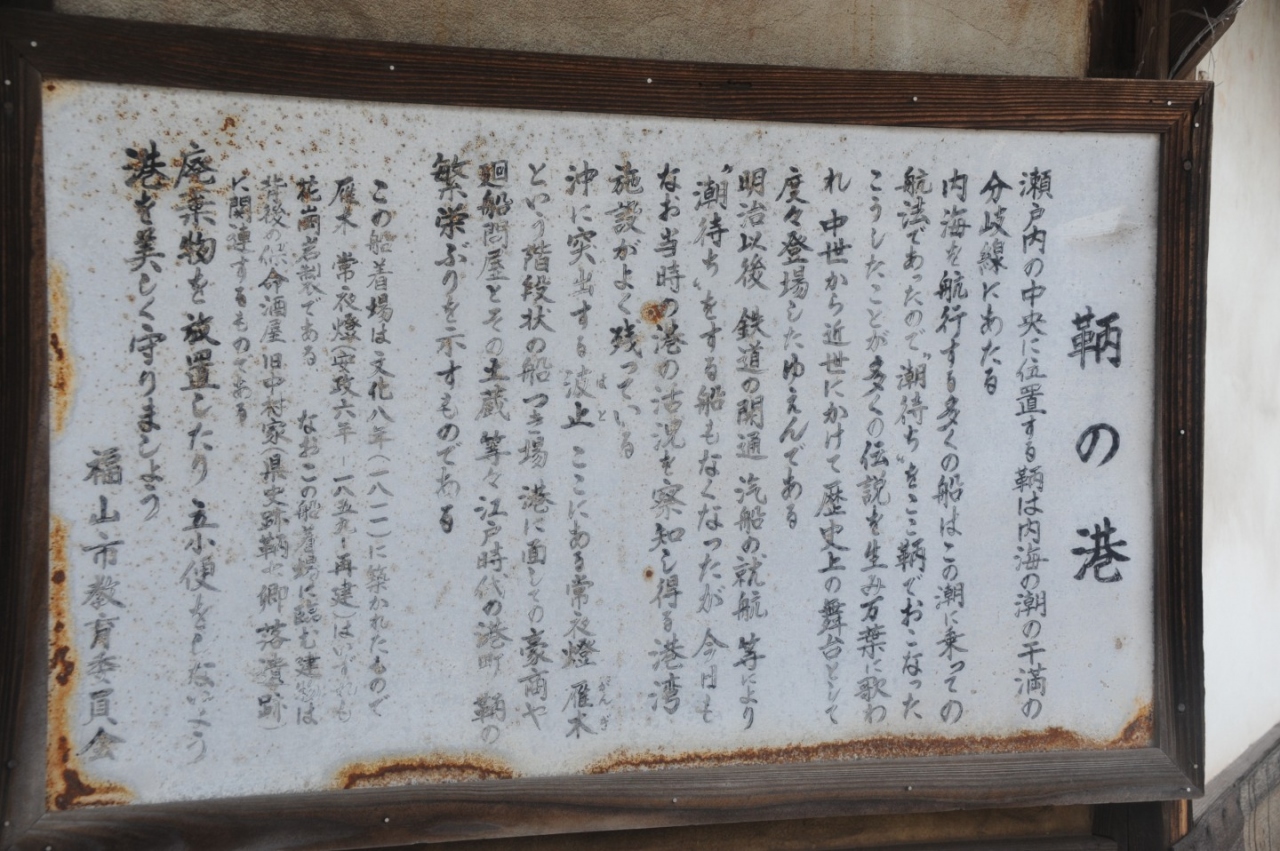 鞆の港
瀬戸内の中央に位置する鞆は内海の潮の干満の
分岐線にあたる
内海を航行する多くの船はこの潮に乗っての
航法であったので〝潮待ち〟をここ鞆でおこなった
こうしたことが多くの伝説を生み万葉に歌わ
れ 中世から近世にかけて歴史上の舞台として
度々登場したゆえんである
明治以後 鉄道の開通 汽船の就航 等により
〝潮待ち〟をする船もなくなったが 今日も
なお当時の港の活況を察知し得る港湾
施設がよく残っている
沖に突出する波止 ここにある常夜燈 雁木
はと
がんぎ
という階段状の船つき場 港に面しての豪商や
廻船問屋とその土蔵 等々 江戸時代の港町 鞆の
繁栄ぶりを示すものである
この船着場は文化八年(一八一一)に築かれたもので
雁木 常夜燈(安政六年-一八五九・再建)はいずれも
花崗岩製である なおこの船着場に臨む建物は
背後の保命酒屋 旧中村家(県史跡鞆七卿落遺跡)
に関連するものである
廃棄物を放置したり 立小便をしないよう
港を美しく守りましよう
福山市教育委員会